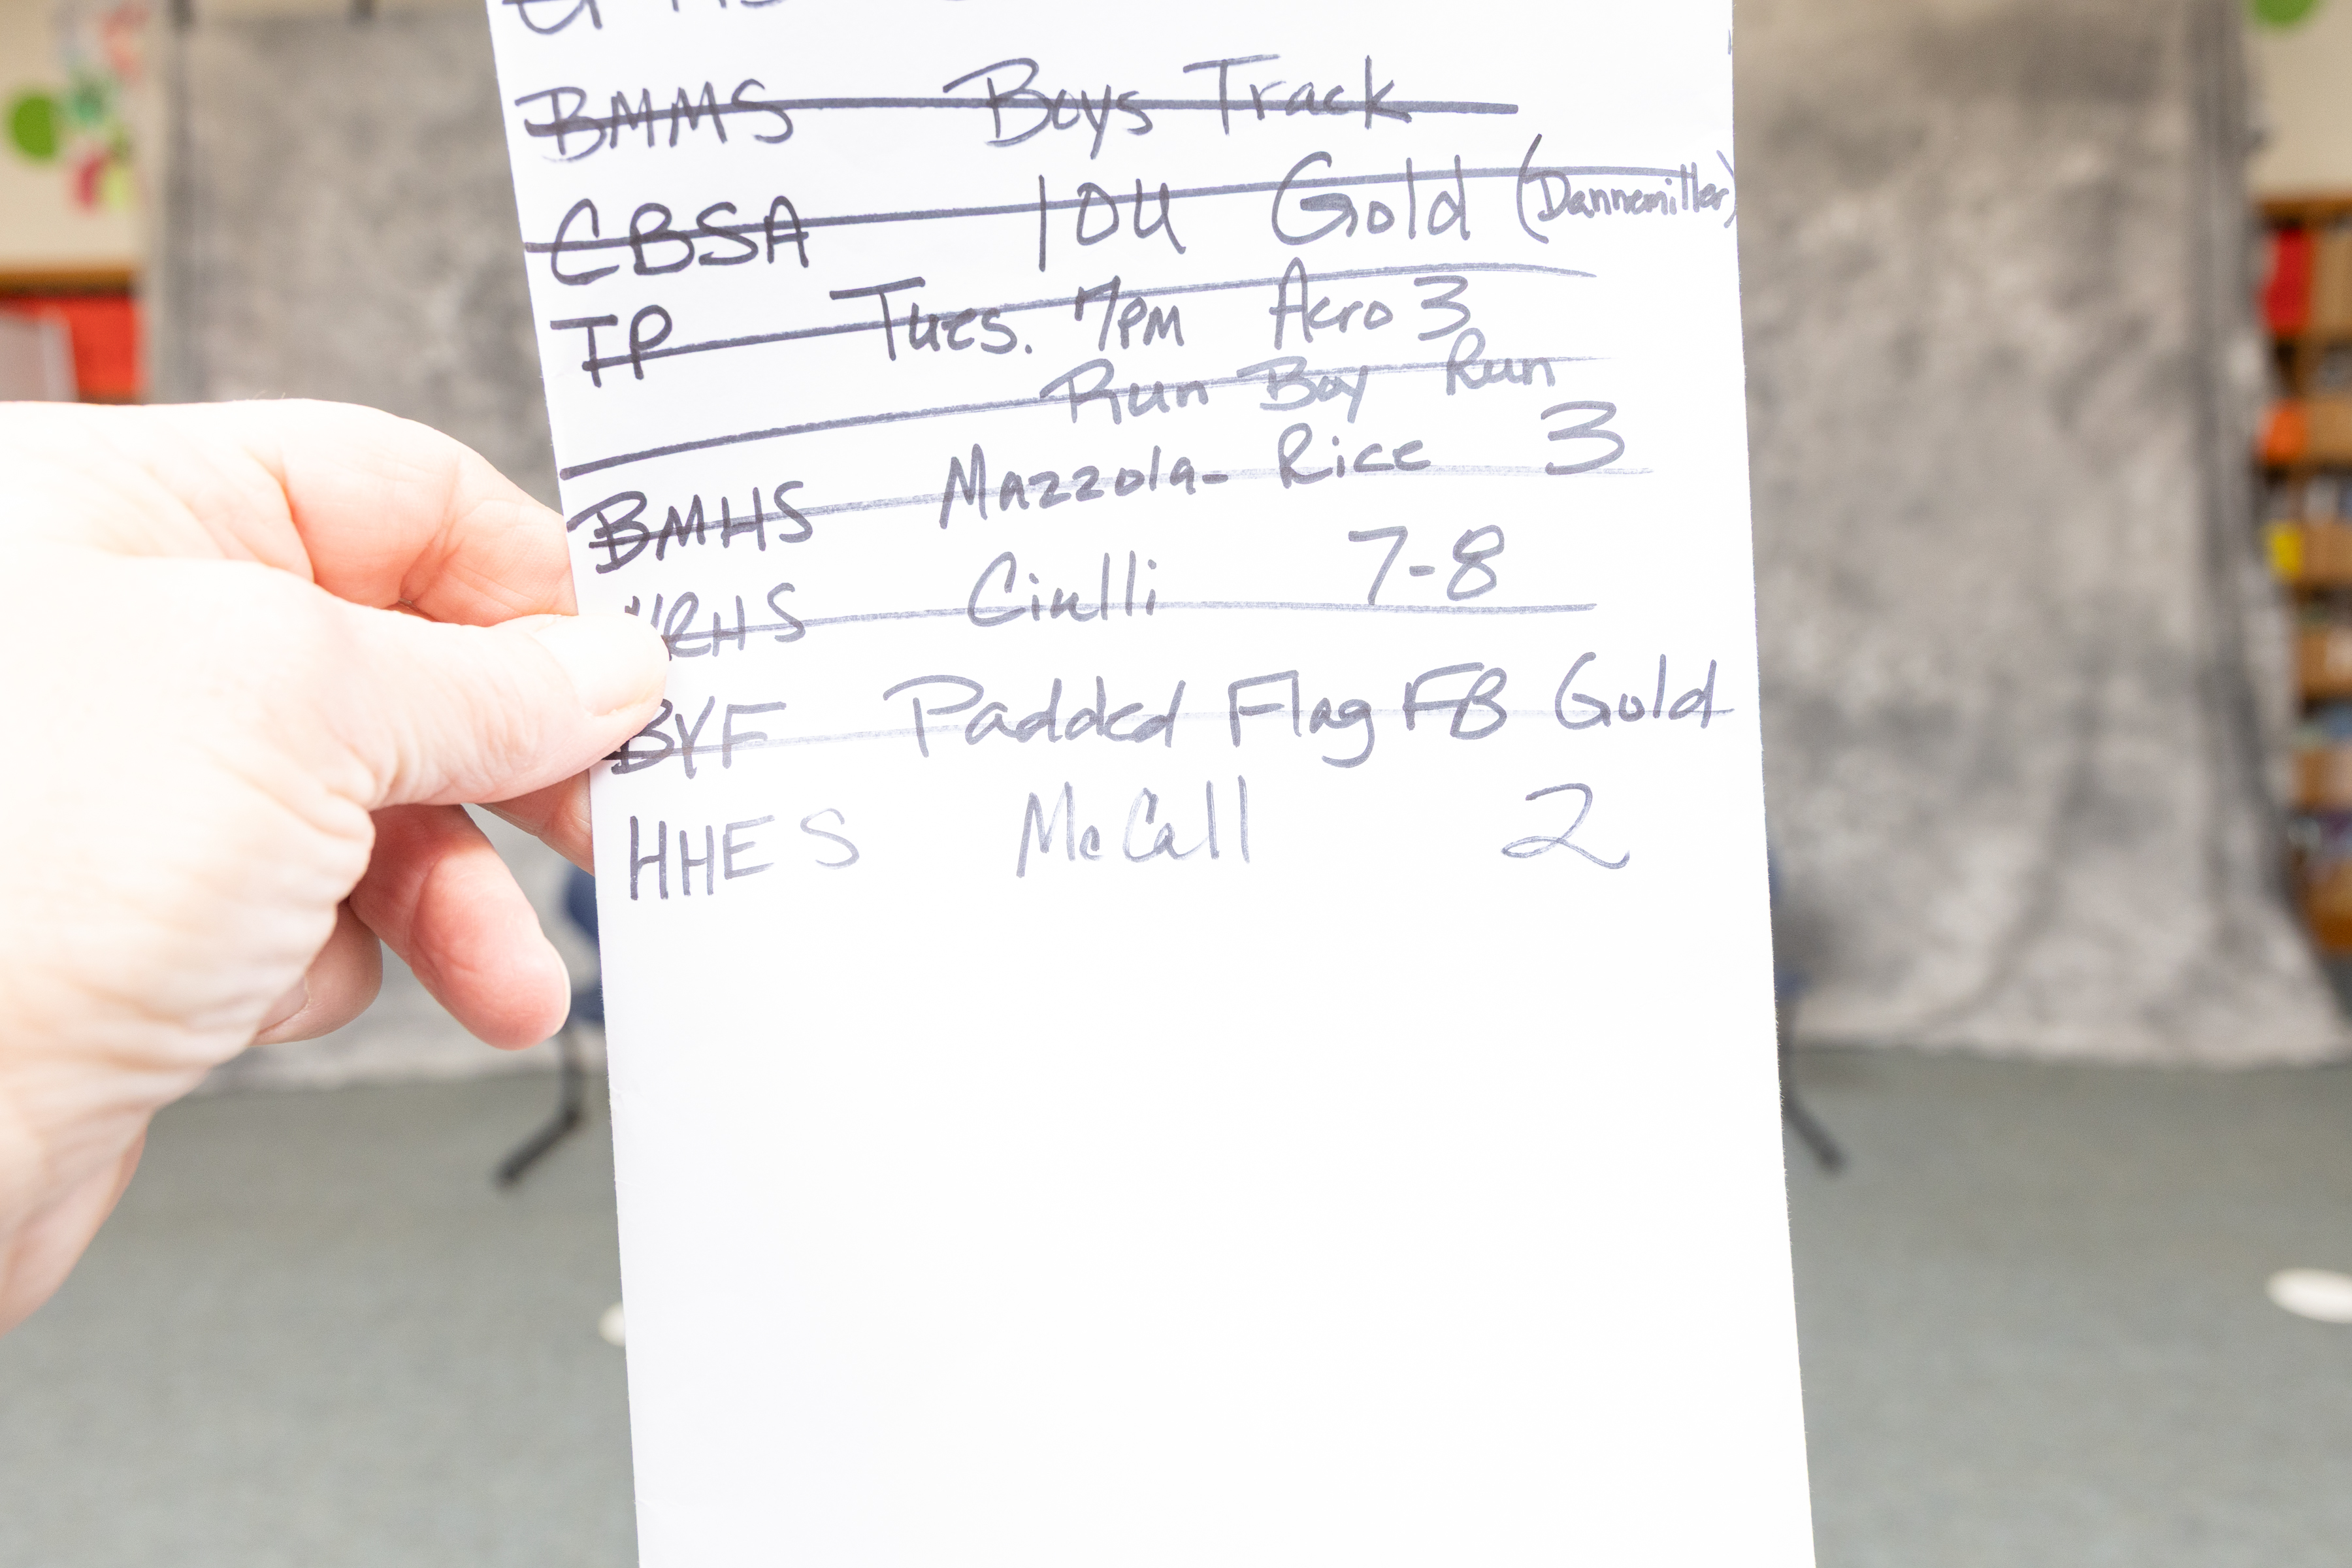 BMMS Boys Track
CBSA 10U Gold (Dannemiller)
IP Tues. 7PM Acro 3
Run Boy Run
BMHS Mazzola-Rice 3
RHS Ciulli 7-8
BYF Padded Flag F8 Gold
HHES McCall 2